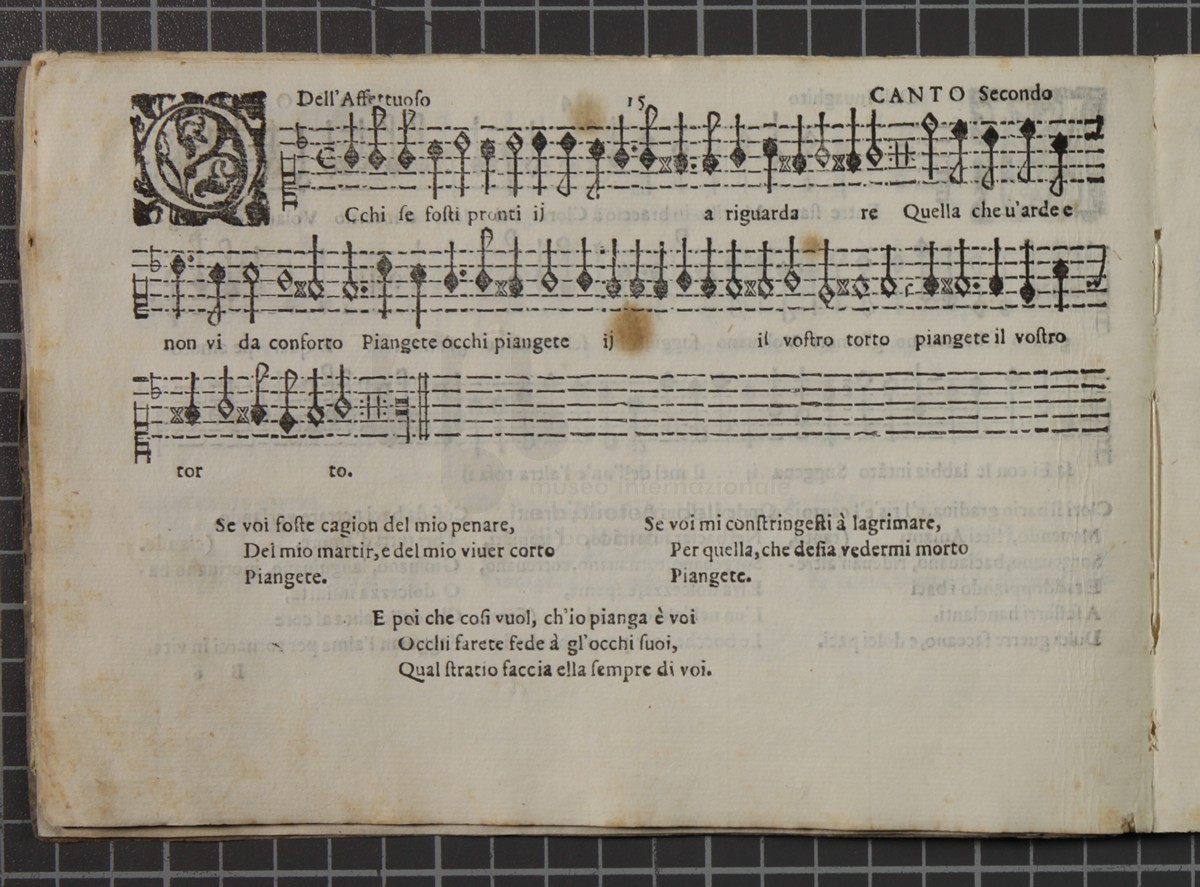 Dell'Affettuoso 15 CANTO Secondo
OCchi se fosti pronti ij a riguarda re Quella che u'arde e
non vi da conforto Piangete occhi piangete ij il vostro torto piangete il vostro
tor to.
museo internazionale
Se voi foste cagion del mio penare,
Del mio martir, e del mio viuer corto
Piangete.
Se voi mi constringesti à lagrimare,
Per quella, che desia vedermi morto
Piangete.
E poi che cosi vuol, ch'io pianga è voi
Occhi farete fede à gl'occhi suoi,
Qual stratio faccia ella sempre di voi.